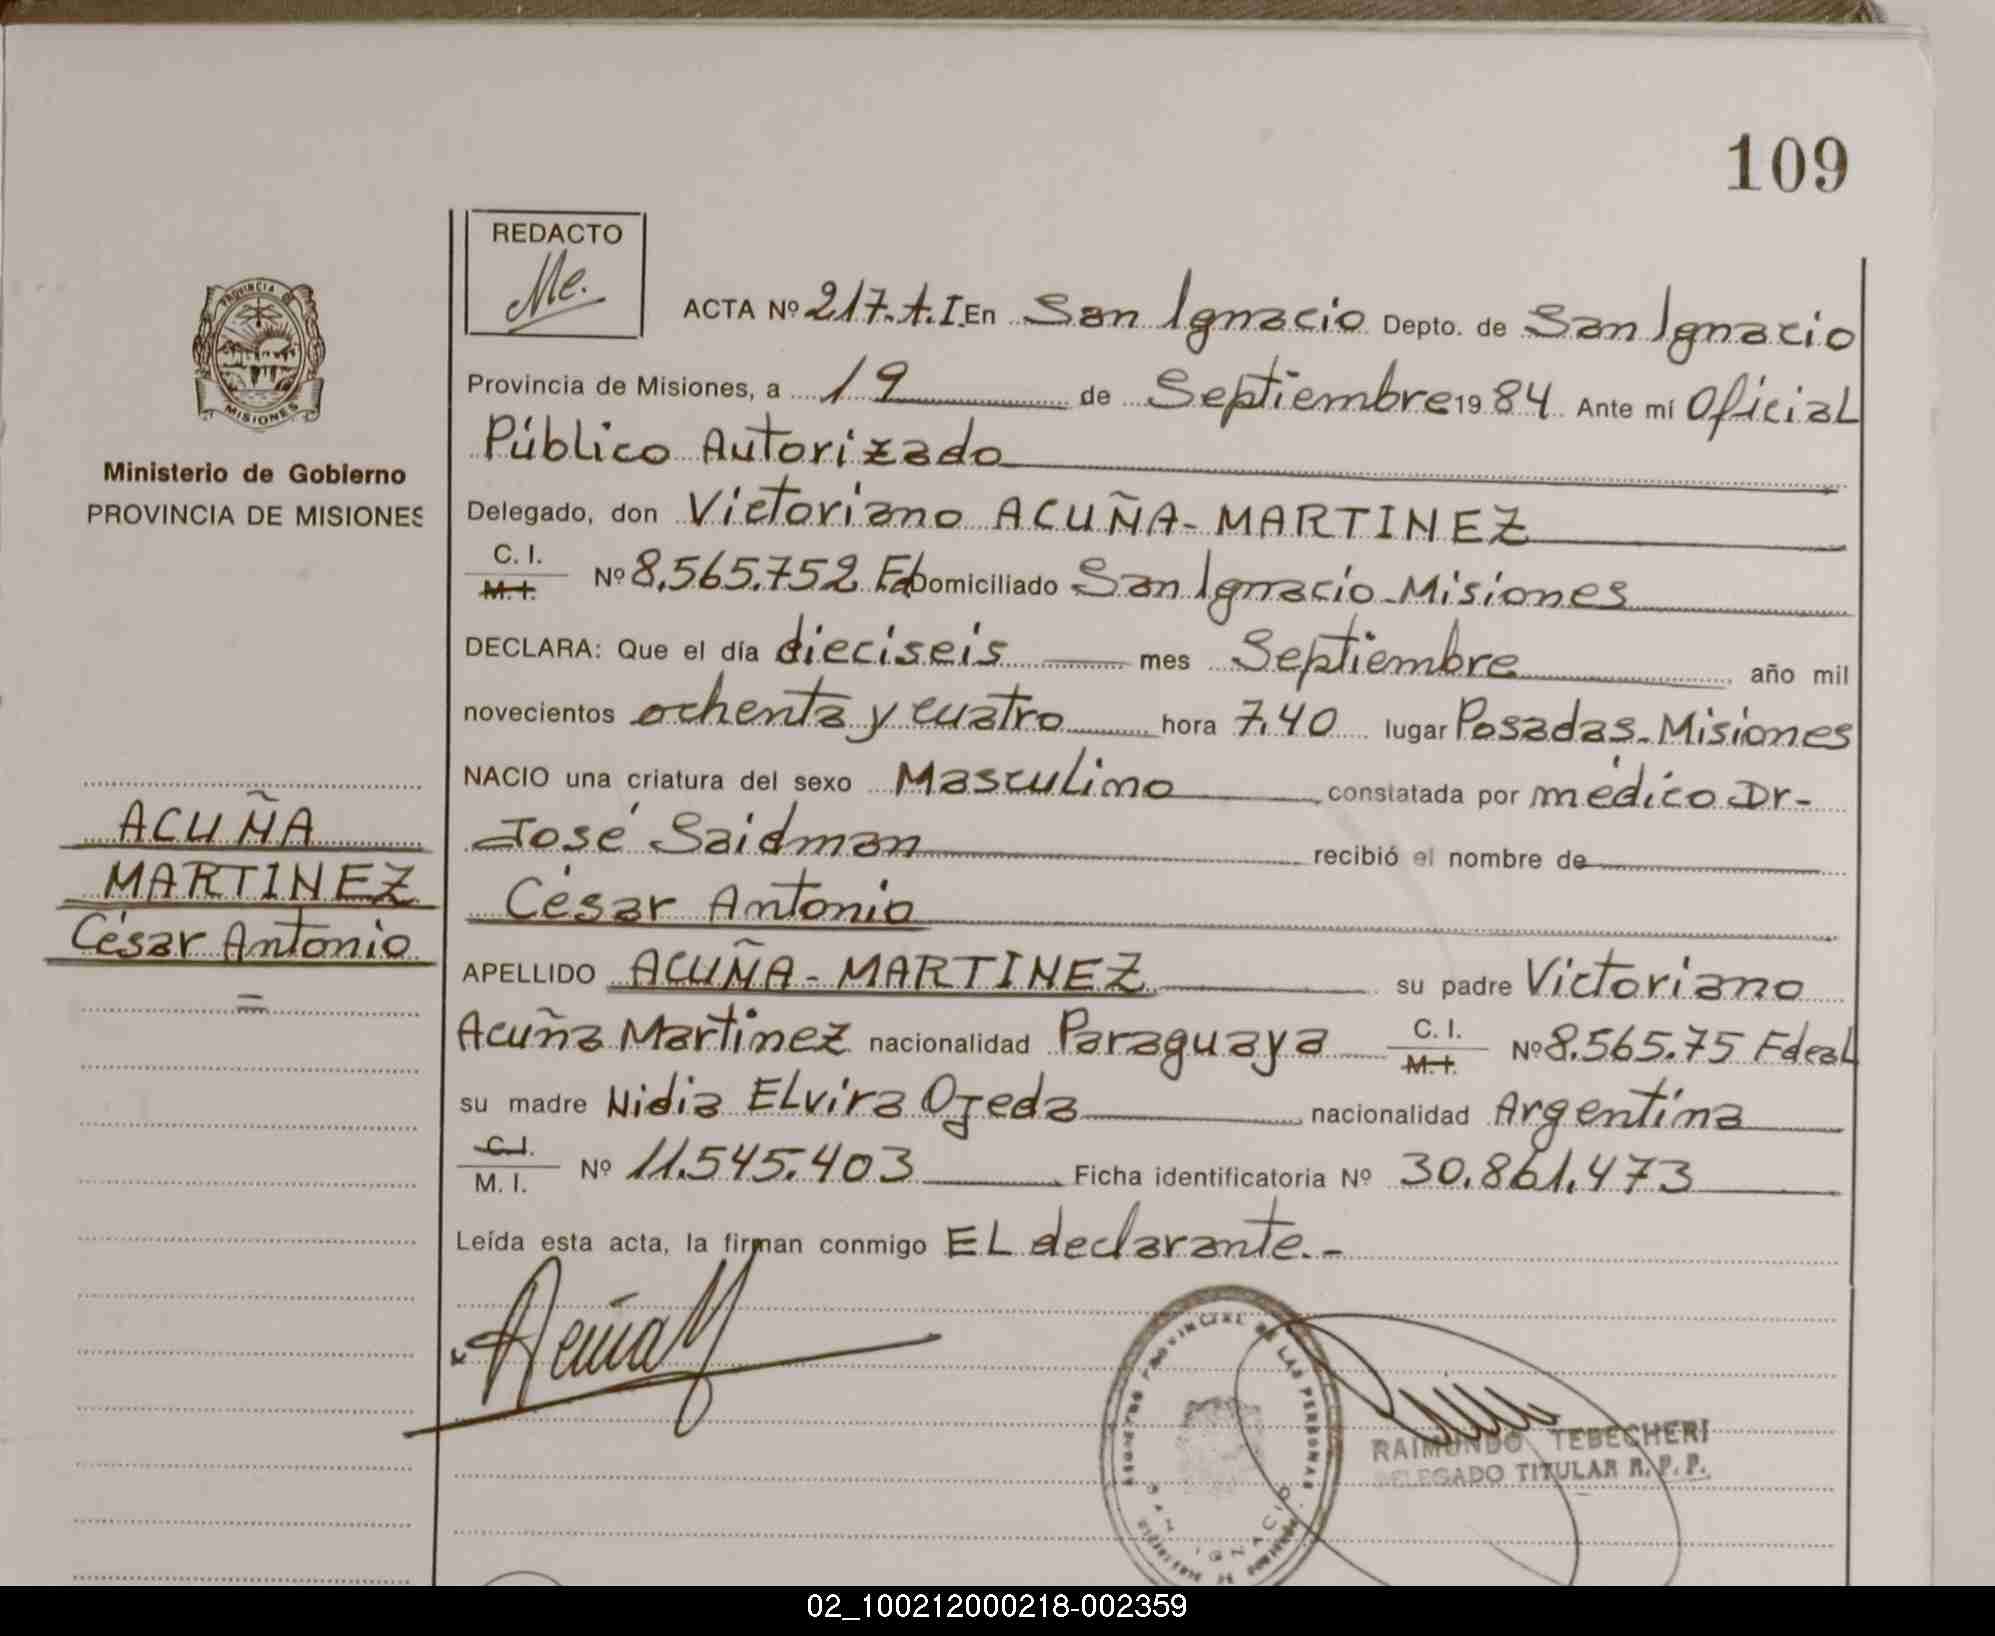 109
REDACTO
Me.
PROVINCIA DE
MISIONES
Ministerio de Gobierno
PROVINCIA DE MISIONES
ACTA Nº 217.A.I. En San Ignacio Depto. de San Ignacio
Provincia de Misiones, a 19 de Septiembre 19 84 Ante mí Oficial
Público Autorizado
Delegado, don Victoriano ACUÑA-MARTINEZ
C. I.
M. I. Nº 8.565.752 Fd Domiciliado San Ignacio-Misiones
DECLARA: Que el día dieciseis mes Septiembre año mil
novecientos ochenta y cuatro hora 7.40 lugar Posadas-Misiones
NACIO una criatura del sexo Masculino constatada por médico Dr-
José Saidman recibió el nombre de
César Antonio
APELLIDO ACUÑA-MARTINEZ su padre Victoriano
Acuña Martinez nacionalidad Paraguaya C. I.
M. I. Nº 8.565.75 Fdeal
su madre Nidia Elvira Ojeda nacionalidad Argentina
C. I.
M. I. Nº 11.545.403 Ficha identificatoria Nº 30.861.473
Leída esta acta, la firman conmigo EL declarante.-
ACUÑA
MARTINEZ
César Antonio
Acuña M
REGISTRO PROVINCIAL DE LAS PERSONAS
SAN IGNACIO
RAIMUNDO TEBECHERI
DELEGADO TITULAR R. P. P.
02_100212000218-002359